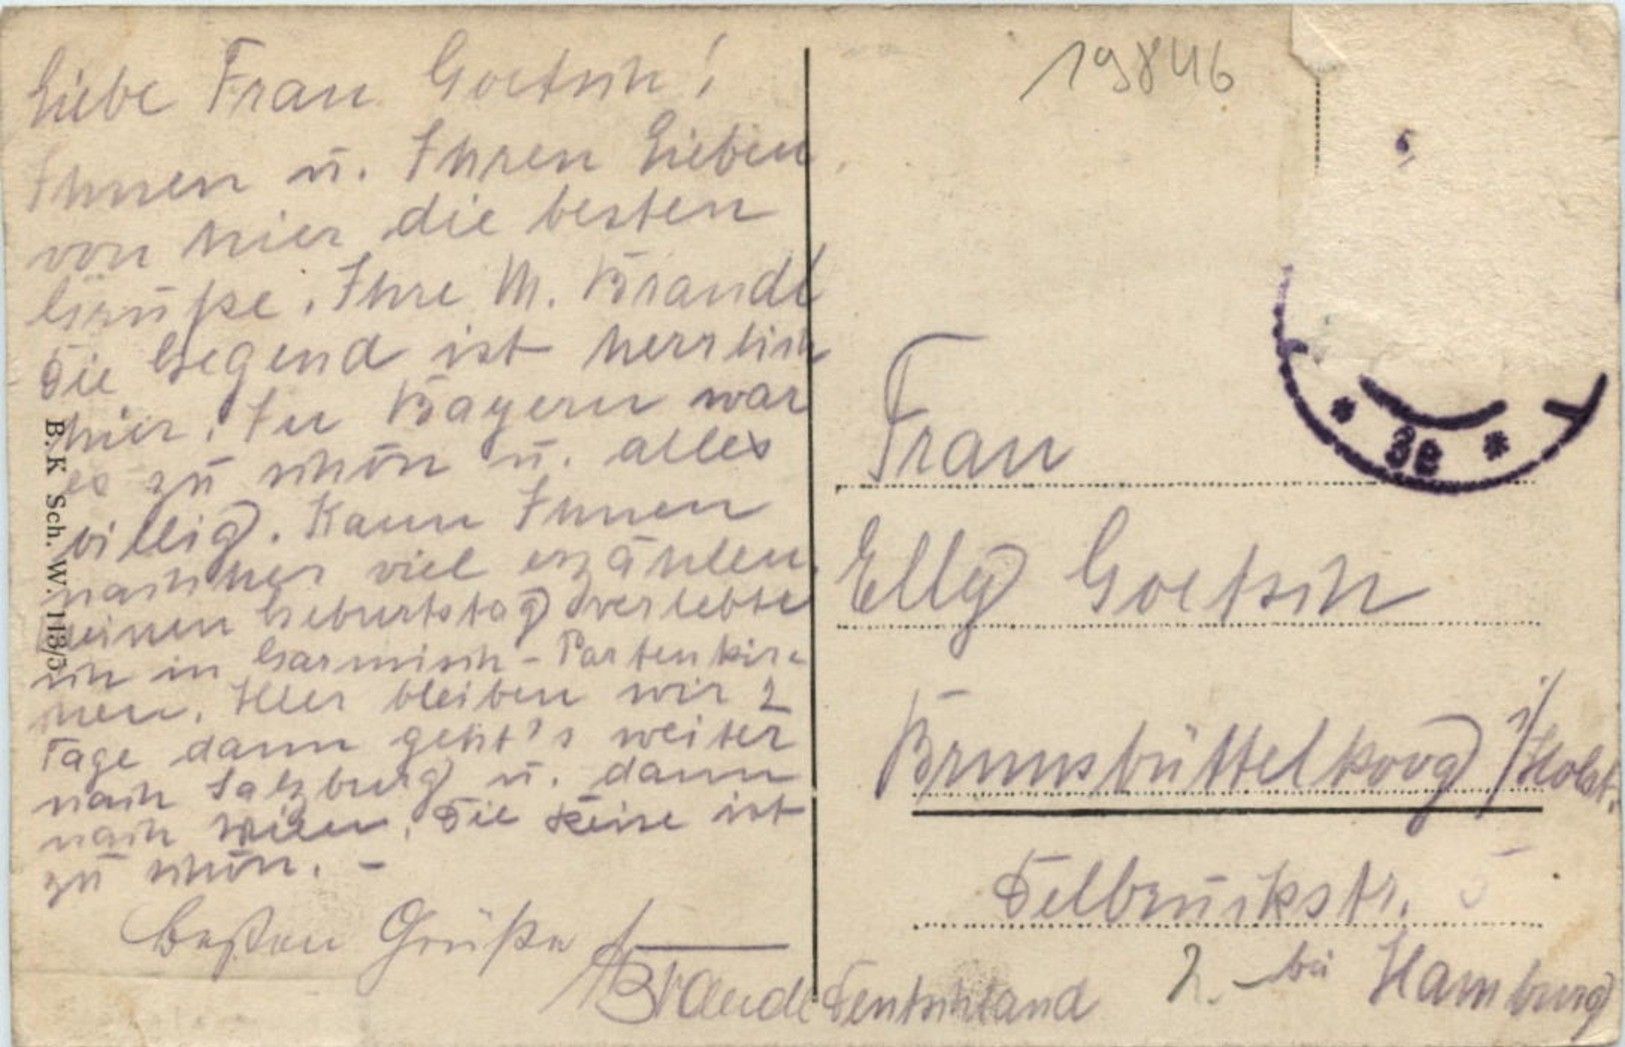 Liebe Frau Goetsch!
Ihnen u. Ihren Lieben
von hier die besten
Grüße. Ihre M. Brandt
Die Gegend ist herrlich
hier. In Bayern war
es zu schön u. alles
billig. Kann Ihnen
nachher viel erzählen.
Meinen Geburtstag verlebte
ich in Garmisch-Partenkir-
chen. Hier bleiben wir 2
Tage dann geht's weiter
nach Salzburg u. dann
nach Wien. Die Reise ist
zu schön. -
Besten Grüße
Brandt
B. K. Sch. W. 113/5
19846
3e
Frau
Elly Goetsch
Brunsbüttelkoog i/Holst.
Delbrückstr.
2.- bei Hamburg
Deutschland